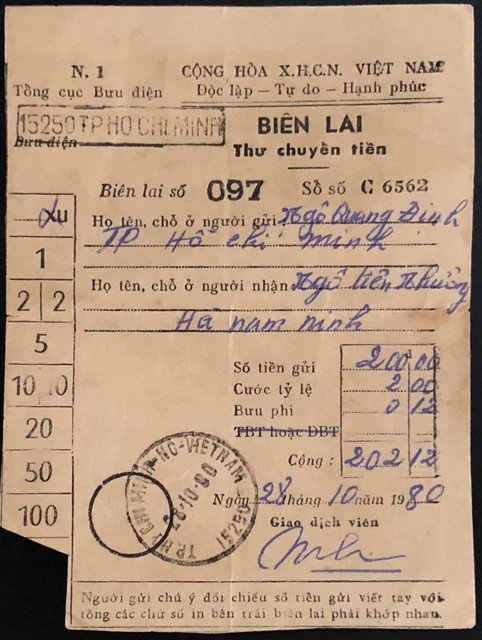 N. 1
Tổng cục Bưu điện
CỘNG HÒA X.H.C.N. VIỆT NAM
Độc lập — Tự do — Hạnh phúc
15250 TP HO CHI MINH
Bưu điện
BIÊN LAI
Thư chuyển tiền
Biên lai số 097 Sồ số C 6562
Xu
1
2 2
5
10 10
20
50
100
Họ tên, chỗ ở người gửi: Ngô Quang Định
TP Hồ chí Minh
Họ tên, chỗ ở người nhận Ngô tiến Nhường
Hà nam ninh
Số tiền gửi 200 00
Cước tỷ lệ 2 00
Bưu phí 0 12
TBT hoặc ĐBT
Cộng : 202 12
TP. HO CHI MINH-VIETNAM
28-10-80
15250
Ngày 28 tháng 10 năm 1980
Giao dịch viên
Người gửi chú ý đối chiếu số tiền gửi viết tay với
tổng các chữ số in bên trái biên lai phải khớp nhau.